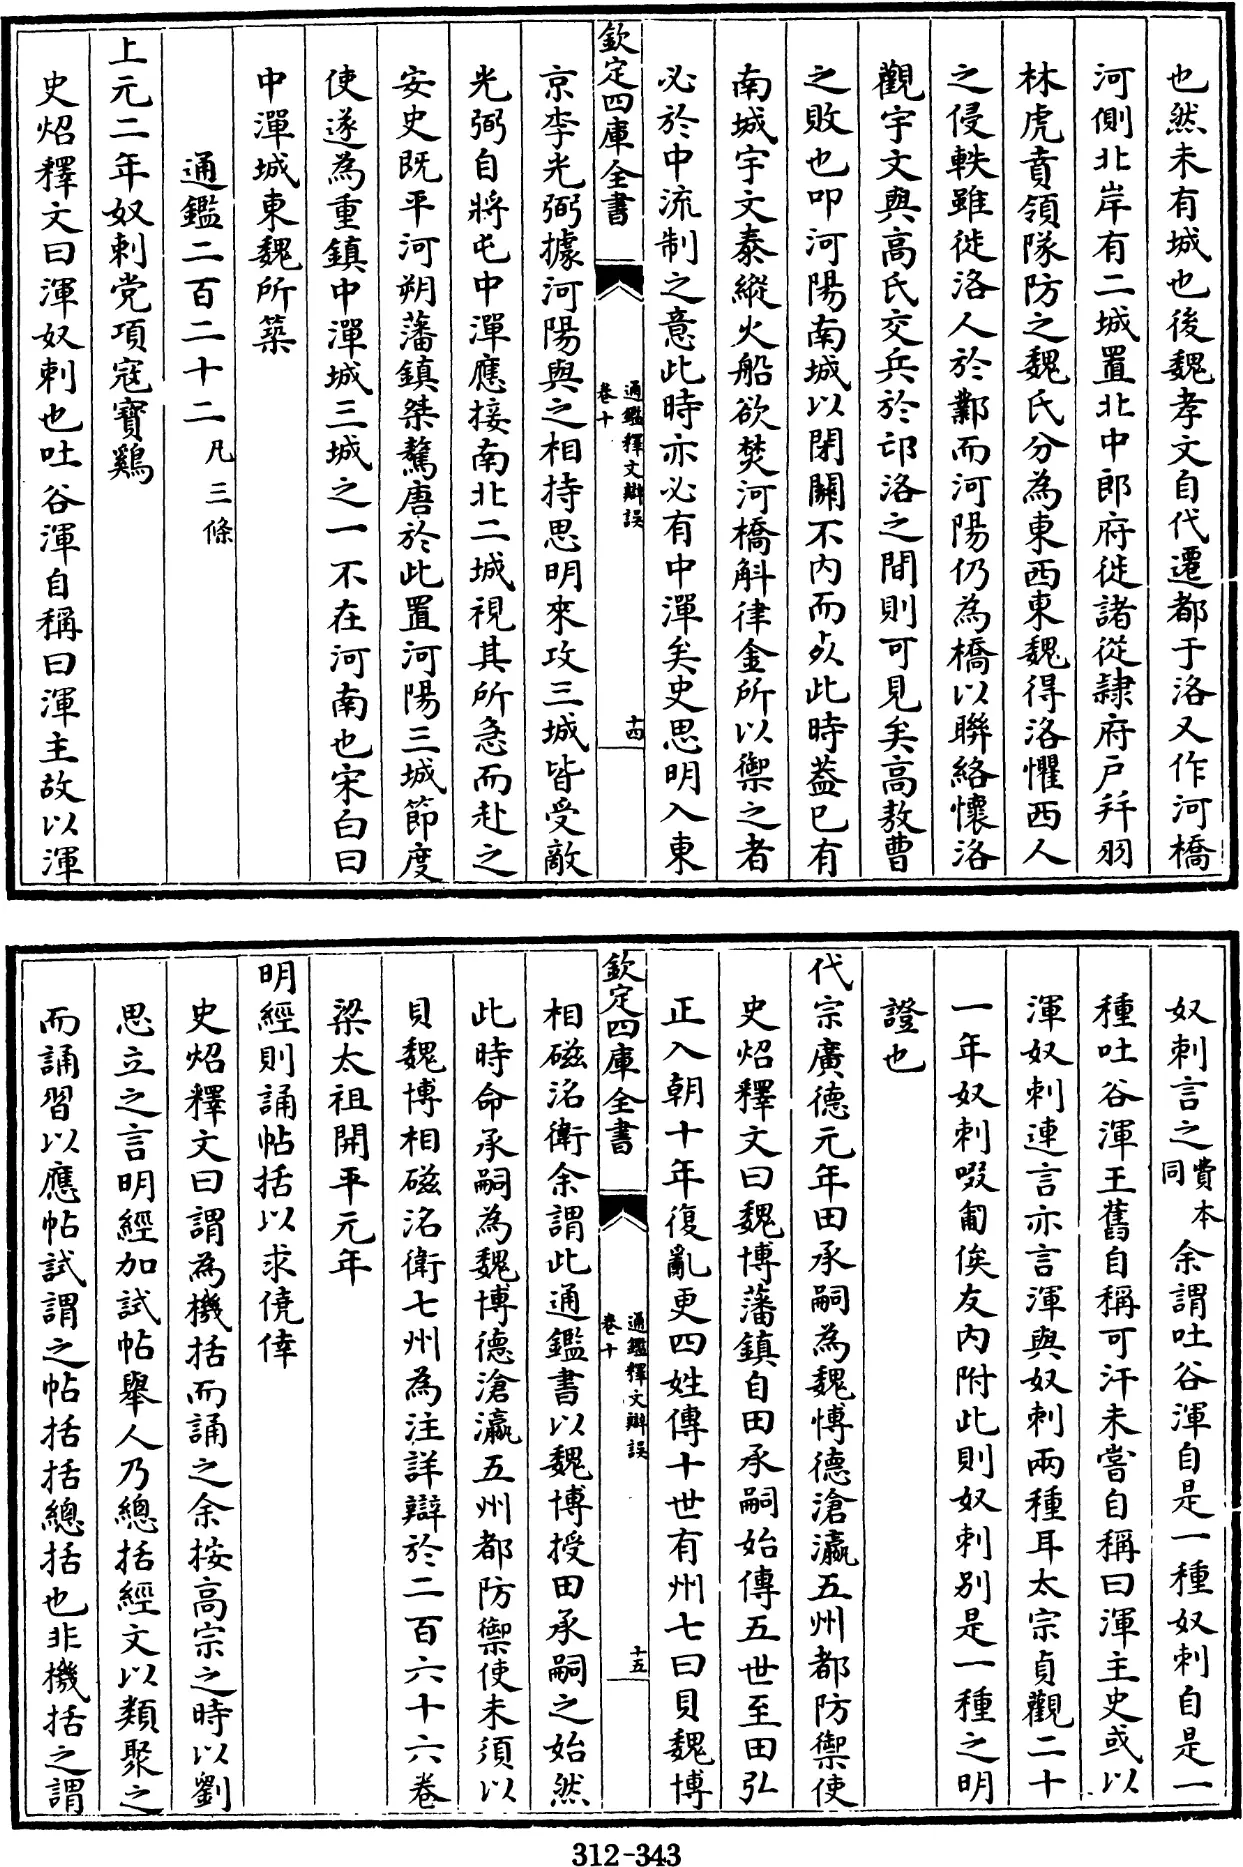 也然未有城也後魏孝文自代遷都于洛又作河橋
河側北岸有二城置北中郎府徙諸從隷府戸幷羽
林虎賁領隊防之魏氏分為東西東魏得洛懼西人
之侵軼雖徙洛人於鄴而河陽仍為橋以聯絡懷洛
觀宇文與高氏交兵於邙洛之間則可見矣高敖曹
之敗也叩河陽南城以閉關不内而死此時葢已有
南城宇文泰縱火船欲焚河橋斛律金所以禦之者
必於中流制之意此時亦必有中潬矣史思明入東
欽定四庫全書
通鑑釋文辯誤
卷十
十四
京李光弼據河陽與之相持思明來攻三城皆受敵
光弼自將屯中潬應接南北二城視其所急而赴之
安史既平河朔藩鎮桀驁唐於此置河陽三城節度
使遂為重鎮中潬城三城之一不在河南也宋白曰
中潬城東魏所築
通鑑二百二十二凡三條
上元二年奴剌党項寇寳鷄
史炤釋文曰渾奴剌也吐谷渾自稱曰渾主故以渾
奴剌言之費本同余謂吐谷渾自是一種奴剌自是一
種吐谷渾王舊自稱可汗未嘗自稱曰渾主史或以
渾奴剌連言亦言渾與奴剌兩種耳太宗貞觀二十
一年奴剌啜匍俟友内附此則奴剌別是一種之明
證也
代宗廣德元年田承嗣為魏博德滄瀛五州都防禦使
史炤釋文曰魏博藩鎮自田承嗣始傳五世至田弘
正入朝十年復亂更四姓傳十世有州七曰貝魏博
欽定四庫全書
通鑑釋文辯誤
卷十
十五
相磁洺衛余謂此通鑑書以魏博授田承嗣之始然
此時命承嗣為魏博德滄瀛五州都防禦使未須以
貝魏博相磁洺衛七州為注詳辯於二百六十六卷
梁太祖開平元年
明經則誦帖括以求僥倖
史炤釋文曰謂為機括而誦之余按高宗之時以劉
思立之言明經加試帖舉人乃總括經文以類聚之
而誦習以應帖試謂之帖括括總括也非機括之謂
312-343